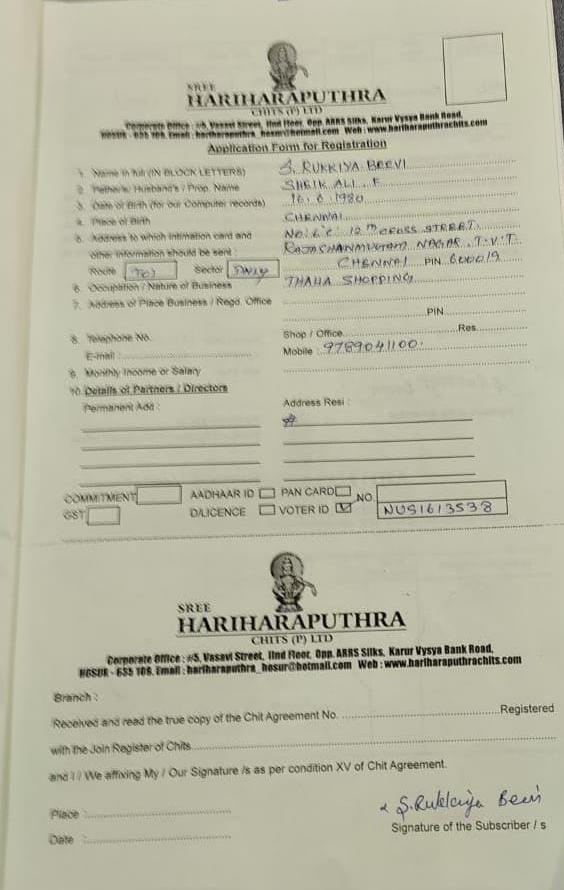 SREE
HARIHARAPUTHRA
CHITS (P) LTD
Corporate Office : #5, Vasavi Street, IInd Floor, Opp. ARRS Silks, Karur Vysya Bank Road,
HOSUR - 635 109. Email : hariharaputhra_hosur@hotmail.com Web : www.hariharaputhrachits.com
Application Form for Registration
1. Name in full (IN BLOCK LETTERS) S. RUKKIYA BEEVI
2. Father's / Husband's / Prop. Name SHEIK ALI . F
3. Date of Birth (for our Computer records) 16.6.1980
4. Place of Birth CHENNAI
5. Address to which intimation card and No: 12th CROSS STREET,
other information should be sent : RAJASHANMUGAM NAGAR, T.V.T.
Route Sector DAILY CHENNAI PIN 600019
6. Occupation / Nature of Business THAHA SHOPPING
7. Address of Place Business / Regd. Office
PIN
8. Telephone No. Shop / Office Res.
E-mail : Mobile : 9789041100.
9. Monthly Income or Salary
10. Details of Partners / Directors
Permanent Add : Address Resi :
COMMITMENT AADHAAR ID PAN CARD NO.
GST D/LICENCE VOTER ID ✓ NUS1613538
SREE
HARIHARAPUTHRA
CHITS (P) LTD
Corporate Office : #5, Vasavi Street, IInd Floor, Opp. ARRS Silks, Karur Vysya Bank Road,
HOSUR - 635 109. Email : hariharaputhra_hosur@hotmail.com Web : www.hariharaputhrachits.com
Branch :
Received and read the true copy of the Chit Agreement No. Registered
with the Join Register of Chits
and I / We affixing My / Our Signature /s as per condition XV of Chit Agreement.
Place : S. Rukkiya Beevi
Date : Signature of the Subscriber / s